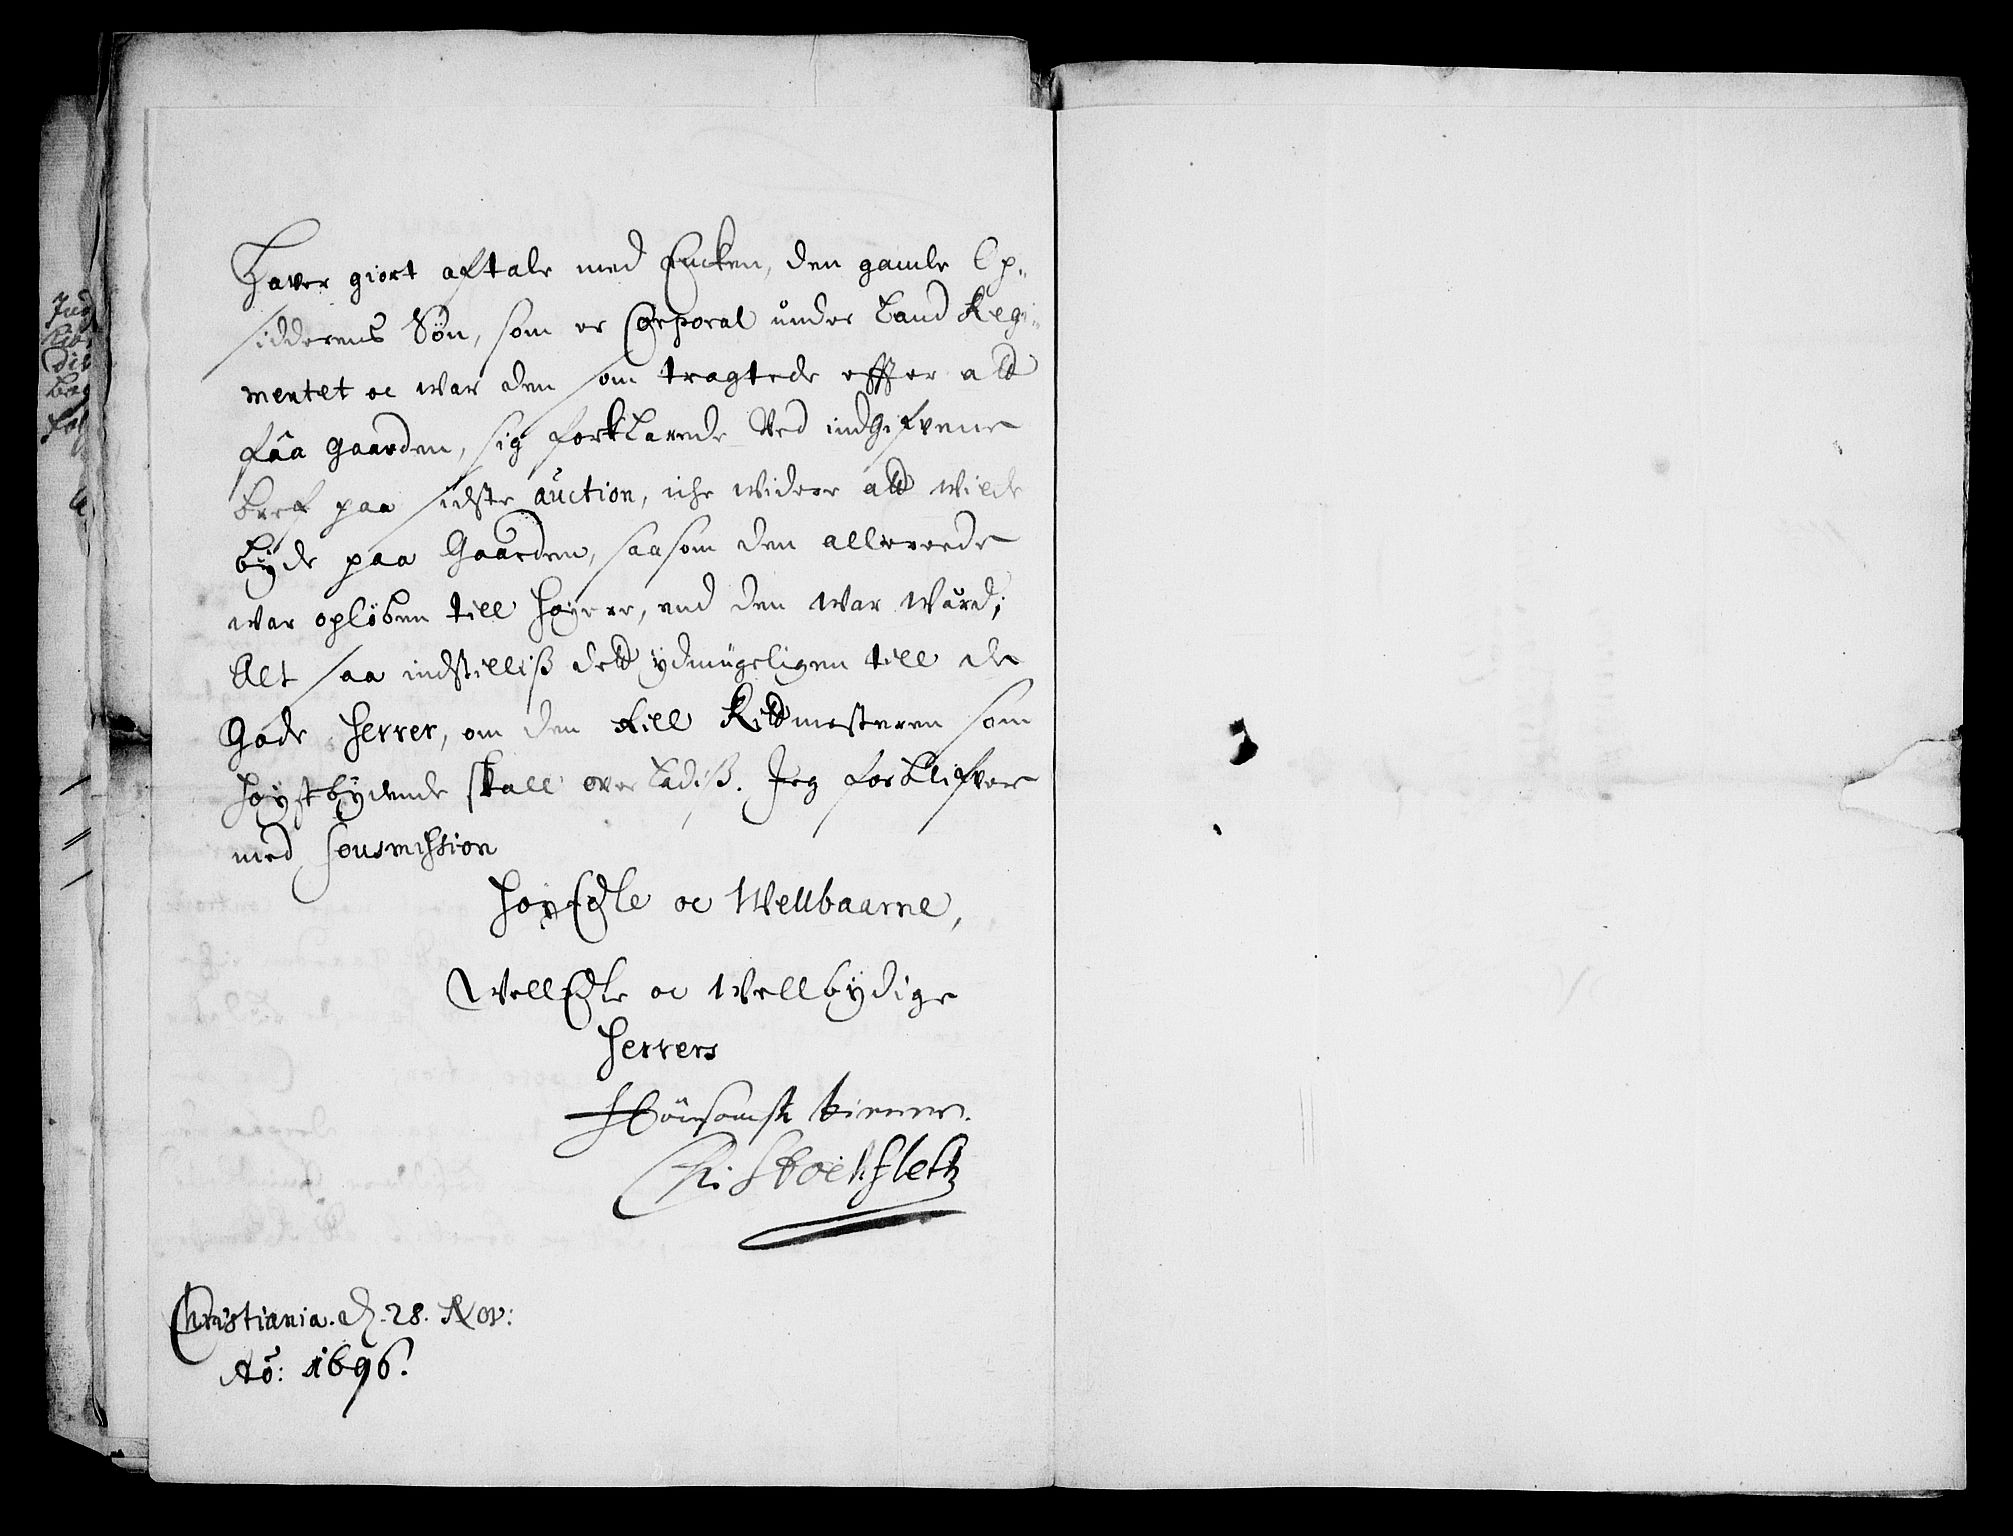 haver giort aftale med Encken, den gamle Op-
sidderens Søn, som er Corporal under Land Regi-
mentet oc war den som tragtede effter att
faa gaarden, sig forklarede Ved indgifvene
bref paa sidste auction, iche widere att wilde
byde paa Gaarden, saasom den allereede
war opløben till høyere, end den war wärd;
Alt saa indstilliß dett ydmygeligen till de
Gode Herrer, om den till Rittmesteren som
høystbydende skall over ladiß. Jeg forblifver
med sousmission
HøyEdle oc Wellbaarne,
WellEdle oc Wellbydige
Herrers
Hörsomste tienner.
Chr: Stockfleth
Christiania. d. 28. Nov:
Aõ: 1696.